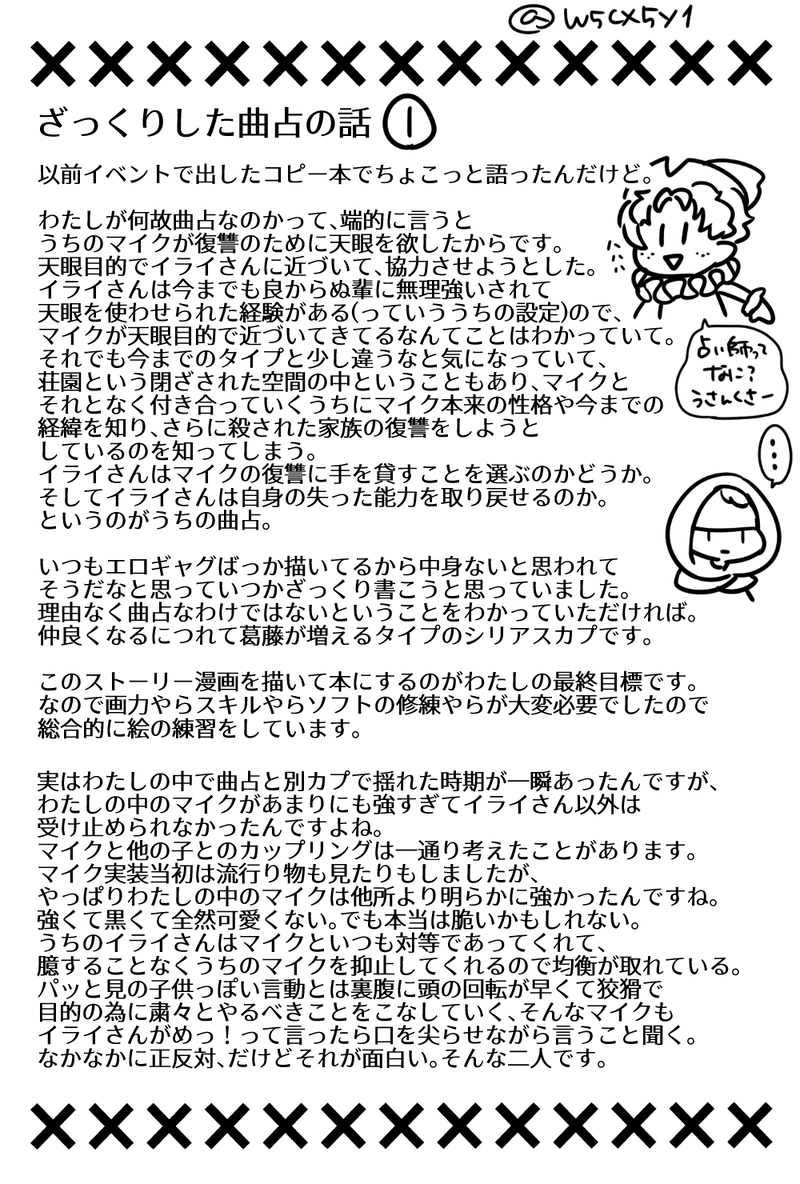 @W5CX5Y1
××××××××××××××
ざっくりした曲占の話 ①
以前イベントで出したコピー本でちょこっと語ったんだけど。
わたしが何故曲占なのかって、端的に言うと
うちのマイクが復讐のために天眼を欲したからです。
天眼目的でイライさんに近づいて、協力させようとした。
イライさんは今までも良からぬ輩に無理強いされて
天眼を使わせられた経験がある(っていううちの設定)ので、
マイクが天眼目的で近づいてきてるなんてことはわかっていて。
それでも今までのタイプと少し違うなと気になっていて、
荘園という閉ざされた空間の中ということもあり、マイクと
それとなく付き合っていくうちにマイク本来の性格や今までの
経緯を知り、さらに殺された家族の復讐をしようと
しているのを知ってしまう。
イライさんはマイクの復讐に手を貸すことを選ぶのかどうか。
そしてイライさんは自身の失った能力を取り戻せるのか。
というのがうちの曲占。
占い師って
なに?
うさんくさー
いつもエロギャグばっか描いてるから中身ないと思われて
そうだなと思っていつかざっくり書こうと思っていました。
理由なく曲占なわけではないということをわかっていただければ。
仲良くなるにつれて葛藤が増えるタイプのシリアスカプです。
このストーリー漫画を描いて本にするのがわたしの最終目標です。
なので画力やらスキルやらソフトの修練やらが大変必要でしたので
総合的に絵の練習をしています。
実はわたしの中で曲占と別カプで揺れた時期が一瞬あったんですが、
わたしの中のマイクがあまりにも強すぎてイライさん以外は
受け止められなかったんですよね。
マイクと他の子とのカップリングは一通り考えたことがあります。
マイク実装当初は流行り物も見たりもしましたが、
やっぱりわたしの中のマイクは他所より明らかに強かったんですね。
強くて黒くて全然可愛くない。でも本当は脆いかもしれない。
うちのイライさんはマイクといつも対等であってくれて、
臆することなくうちのマイクを抑止してくれるので均衡が取れている。
パッと見の子供っぽい言動とは裏腹に頭の回転が早くて狡猾で
目的の為に粛々とやるべきことをこなしていく、そんなマイクも
イライさんがめっ！って言ったら口を尖らせながら言うこと聞く。
なかなかに正反対、だけどそれが面白い。そんな二人です。
××××××××××××××